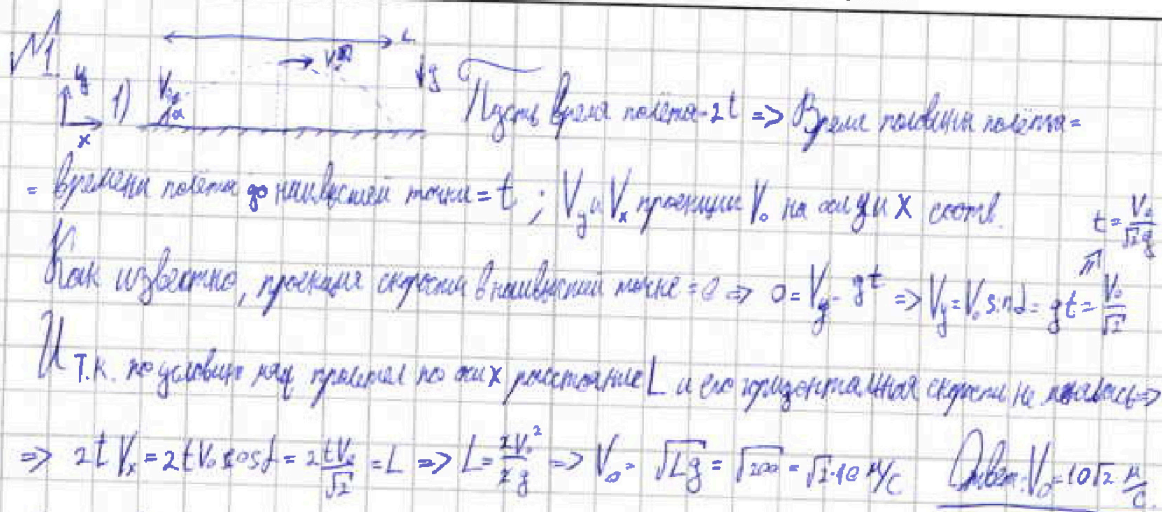 №1.
L
y
V₀
g
x
1) V₀ α
Пусть время полёта - 2t => Время половины полёта =
= времени полёта до наивысшей точки = t ; V_y и V_x проекции V₀ на оси y и x соотв.
t = V₀/√2g
Как известно, проекция скорости в наивысшей точке = 0 => 0 = V_y - gt => V_y = V₀ sin α = gt = V₀/√2
И т.к. по условию мяч пролетел по оси x расстояние L и его горизонтальная скорость не менялась =>
=> 2t V_x = 2t V₀ cos α = 2tV₀/√2 = L => L = 2V₀²/2g => V₀ = √Lg = √200 = √2·10 м/с Ответ: V₀ = 10√2 м/с.